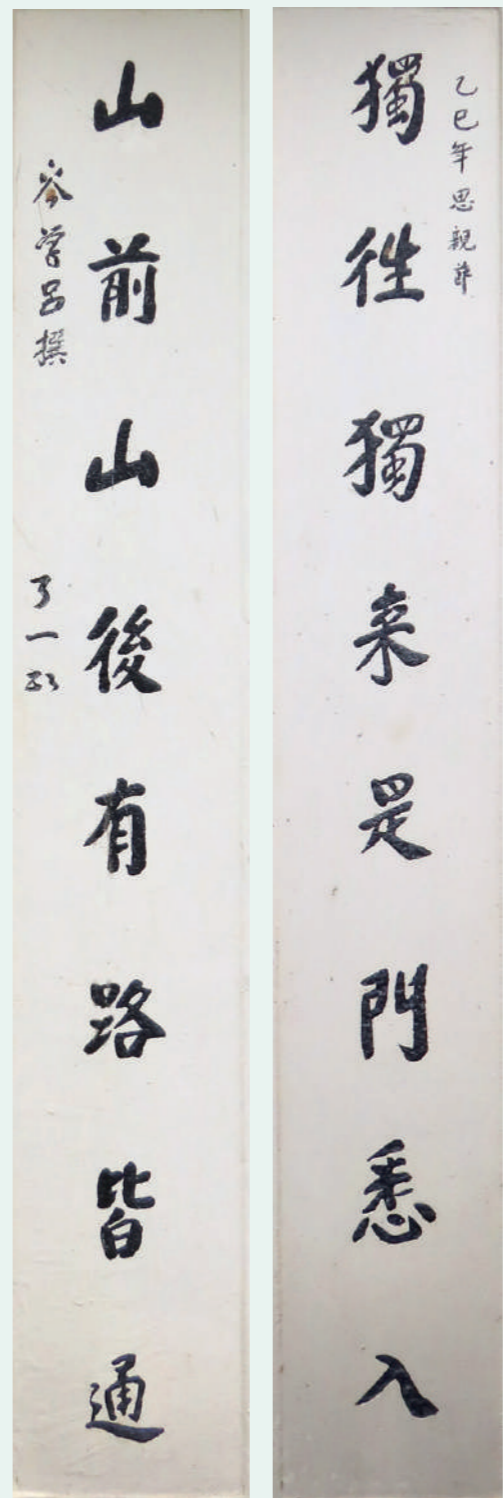 乙巳年思親節
獨徃獨来是門悉入
山前山後有路皆通
岑學呂撰
了一敬